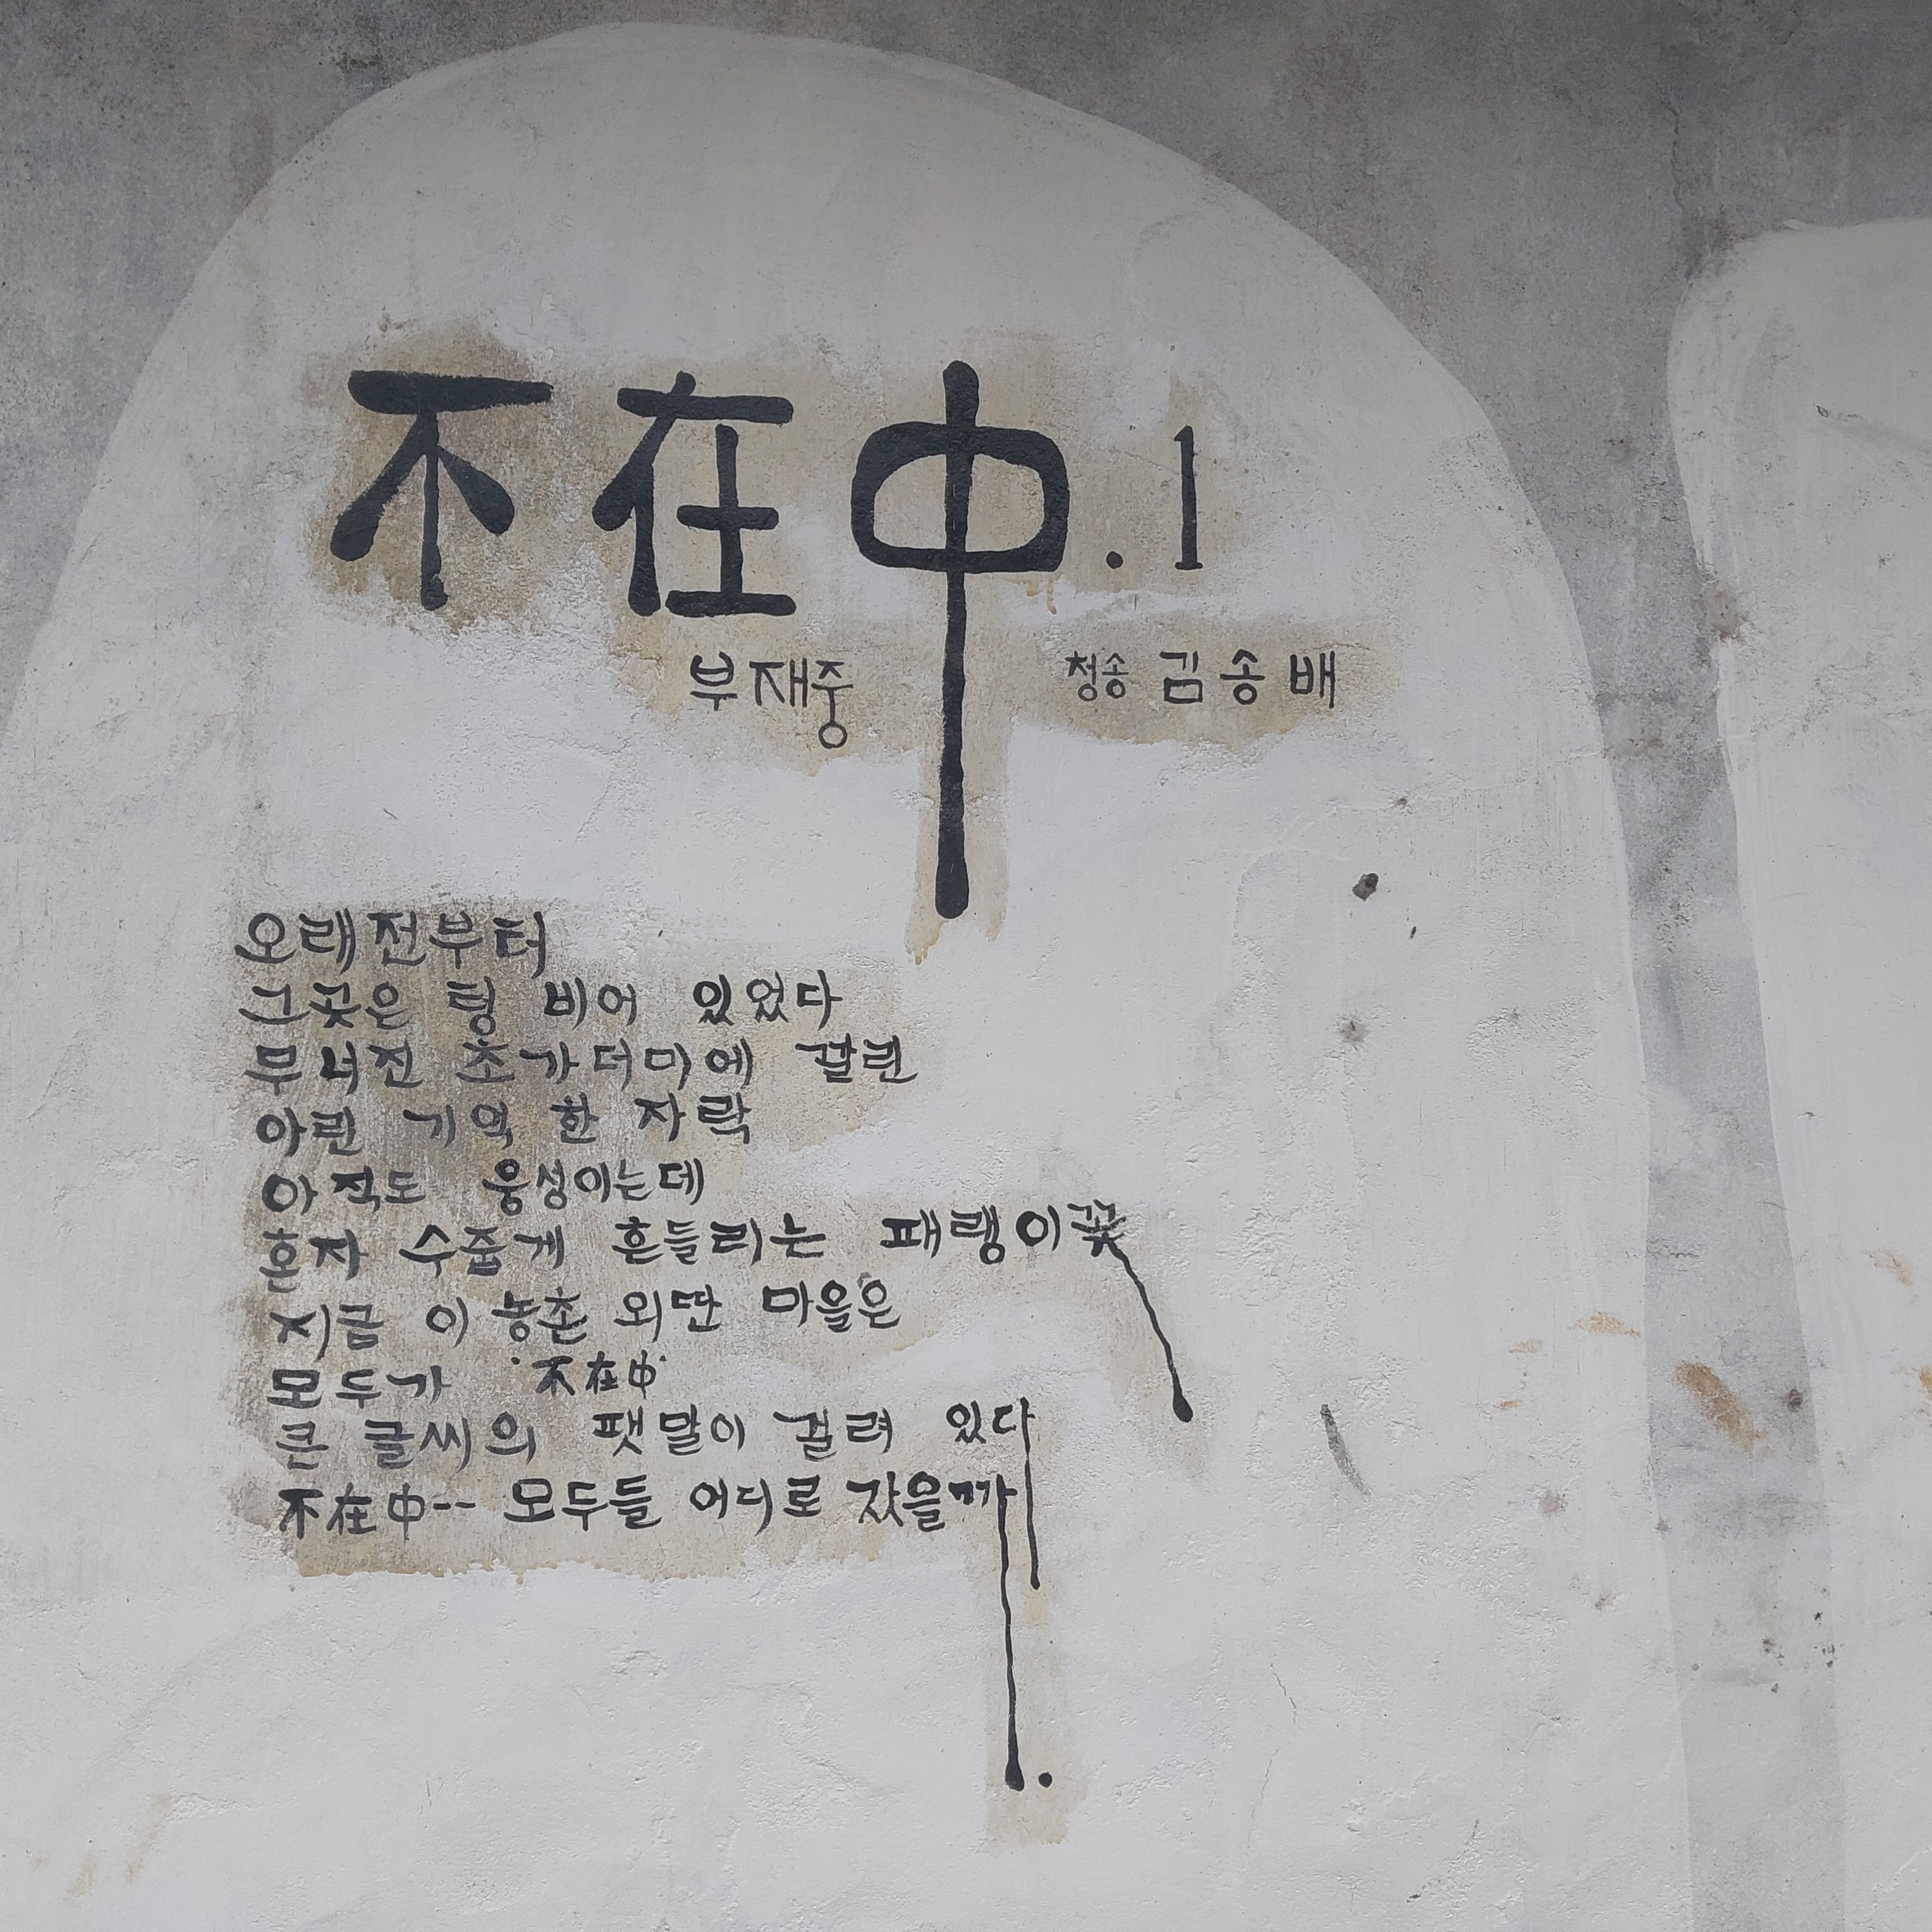 不在中.1
부재중 청송 김송배
오래전부터
그곳은 텅 비어 있었다
무너진 초가더미에 깔린
아린 기억 한 자락
아직도 웅성이는데
혼자 수줍게 흔들리는 패랭이꽃
지금 이 농촌 외딴 마을은
모두가 '不在中'
큰 글씨의 팻말이 걸려 있다
不在中-- 모두들 어디로 갔을까.